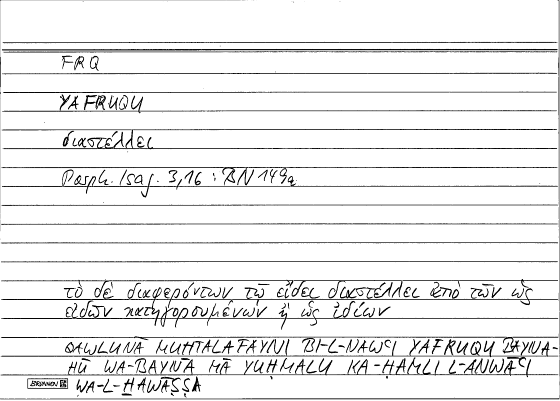 FRQ
YAFRUQU
διαστέλλει
Porph. Isag. 3,16 : BN 149a
τὸ δὲ διαφερόντων τῷ εἴδει διαστέλλει ἀπὸ τῶν ὡς
εἰδῶν κατηγορουμένων ἢ ὡς ἰδίων
QAWLUNĀ MUḪTALAFAYNI BI-L-NAWʿI YAFRUQU BAYNA-
HŪ WA-BAYNA MĀ YUḤMALU KA-ḤAMLI L-ANWĀʿI
WA-L-ḪAWĀṢṢA
BRUNNEN